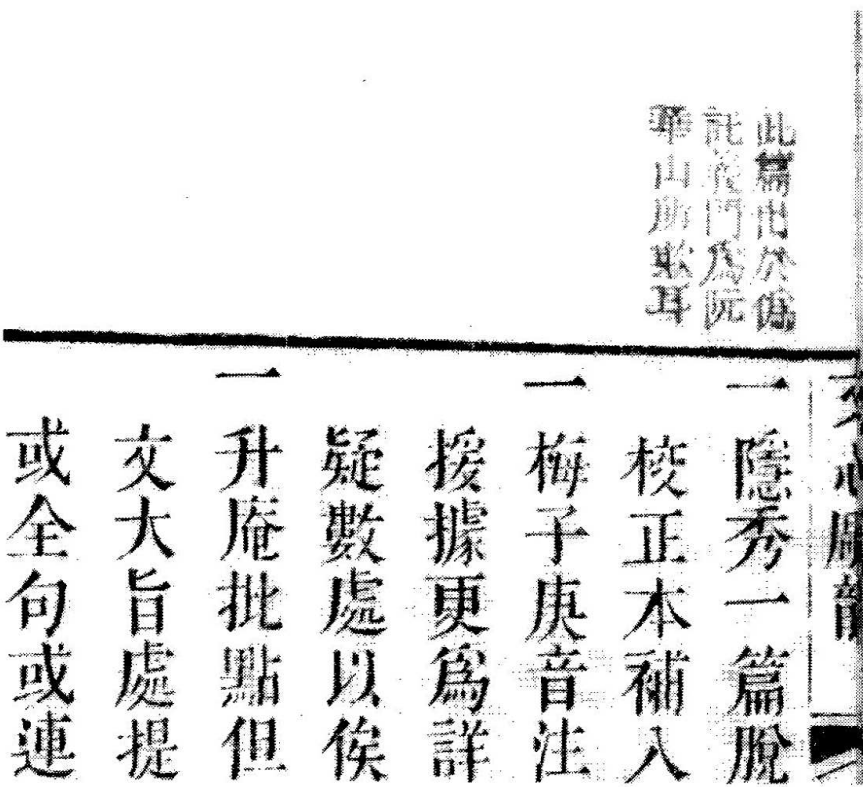 此篇出於偽
託義門為阮
華山所欺耳
文心雕龍
一隱秀一篇脫
校正本補入
一梅子庚音注
援據更爲詳
疑數處以俟
一升庵批點但
文大旨處提
或全句或連